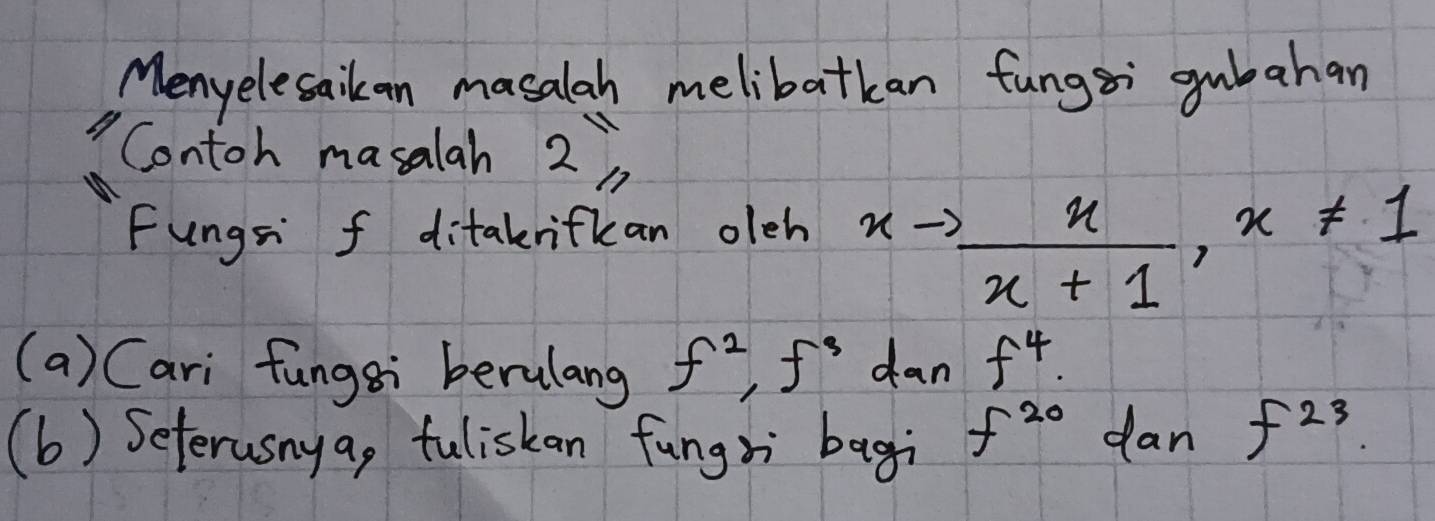 Menyelesaikan masalah melibatkan fungsi gubahan
"Contoh masalah 2"
"Fungsi f ditakrifkan oleh x → x/(x + 1), x ≠ 1
(a) Cari fungsi berulang f², f³ dan f⁴.
(b) Seterusnya, tuliskan fungsi bagi f²⁰ dan f²³.